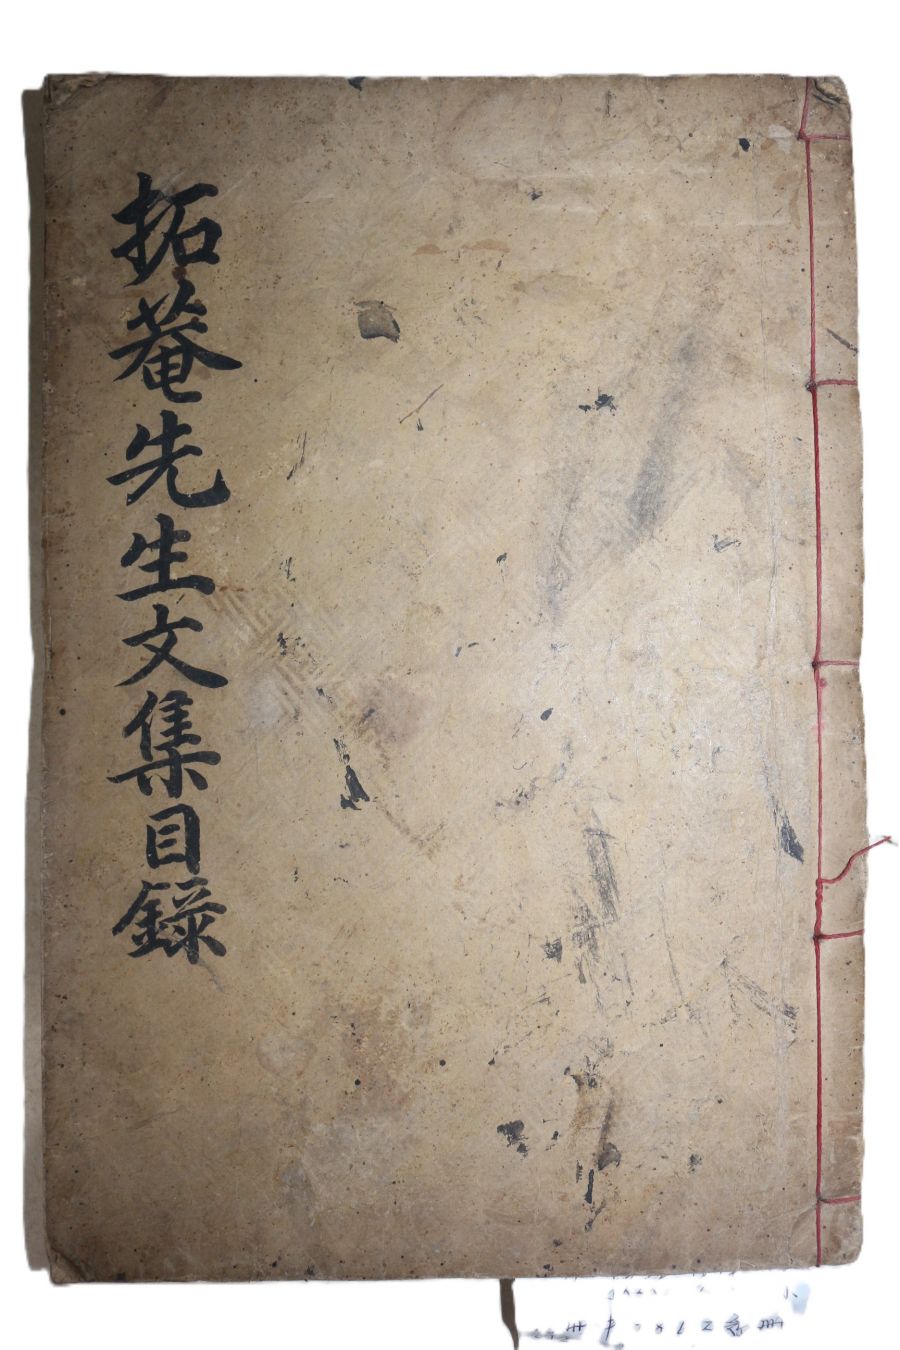 拓菴先生文集目錄